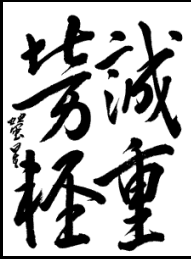 誠重
勞輕